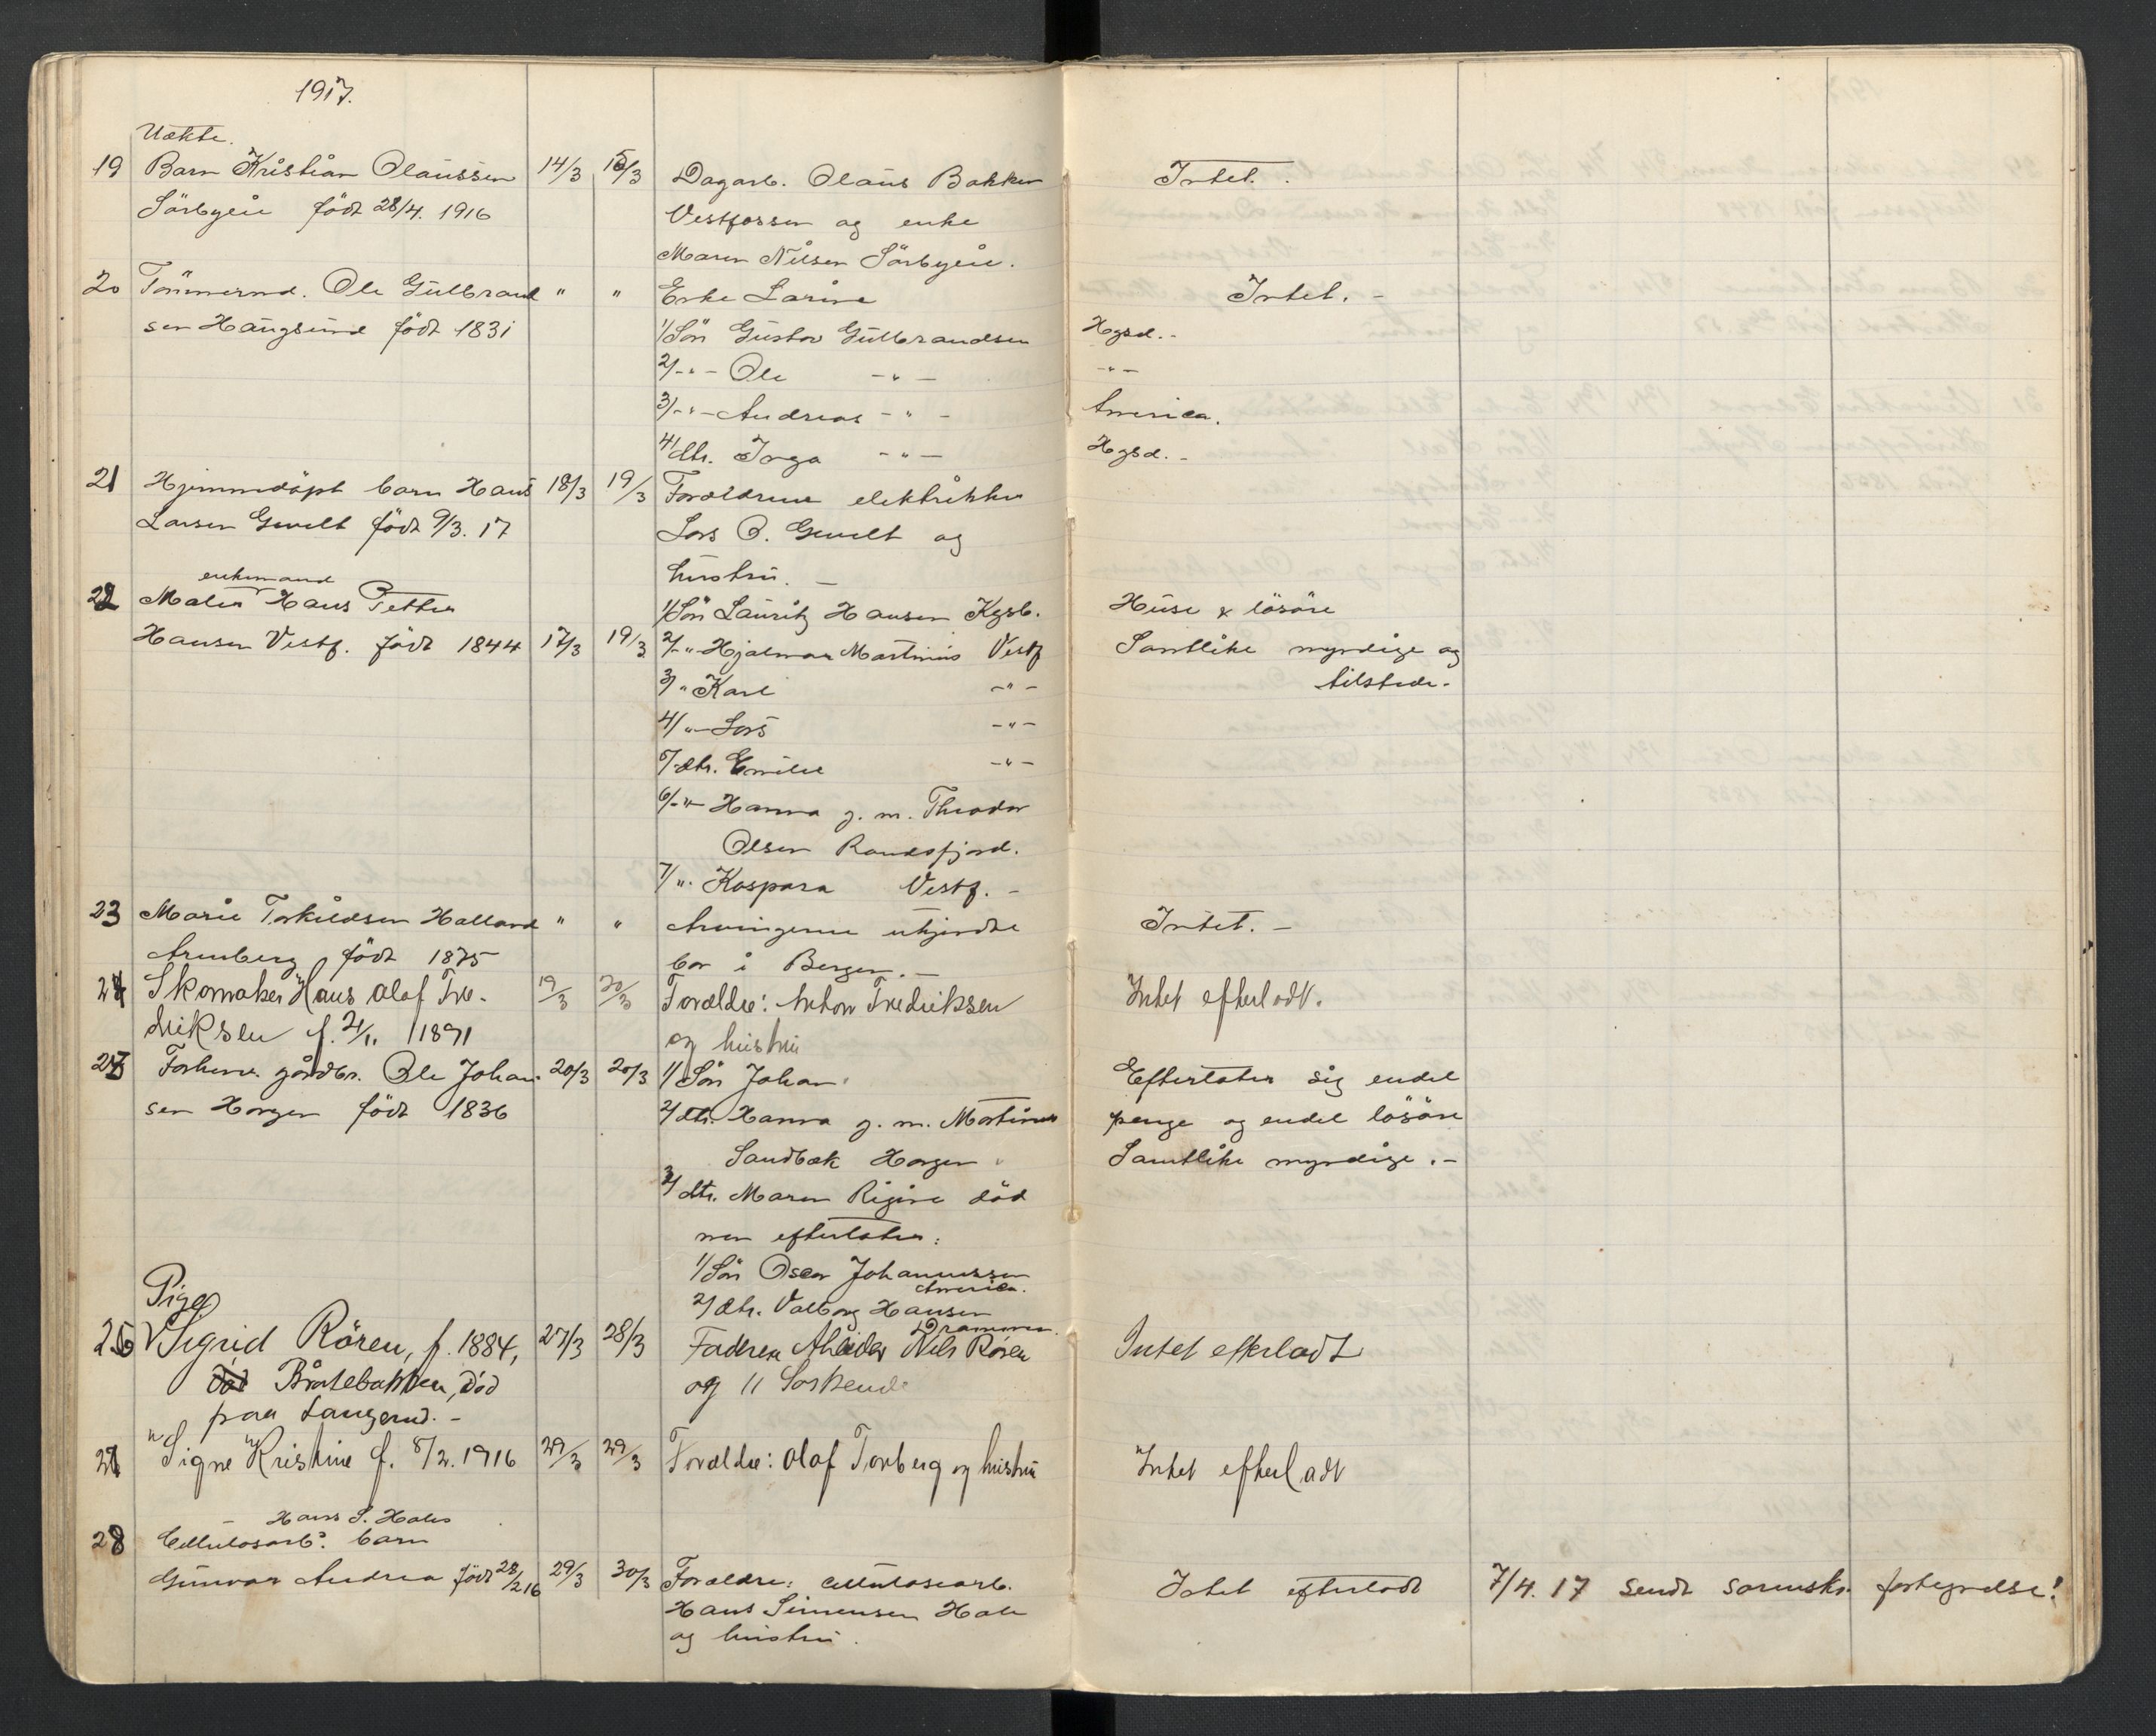 1917.
Uækte.
19 Barn Kristian Olaussen 14/3 15/3 Dagarb. Olaus Bakken Intet.
Sörbyeie född 28/4. 1916 Vestfossen og enke
Maren Nilsen Sörbyeie.
20 Tömmermd. Ole Gulbrand " " Enke Larine Intet. -
sen Haugsund född 1831 1/ Sön Gustav Gulbrandsen Hgsd. -
2/ -"- Ole -"- -"-
3/ -"- Andreas -"- America.
4/ dtr. Inga -"- Hgsd. -
21 Hjemmedöpt barn Hans 18/3 19/3 Forældrene elektriker
Larsen Gevelt född 9/3. 17 Lars O. Gevelt og
hustru. -
enkemand
22 Maler Hans Petter 1/ Sön Lauritz Hansen Kgsb. Huse & lösöre
Hansen Vestf. född 1844 17/3 19/3 2/ -"- Hjalmar Martinius Vestf Samtlike myndige og
3/ " Karl -"- tilstede. -
4/ -"- Lars -"-
5/ dtr. Emilie -"-
6/ -"- Hanna g. m. Theodor
Olsen Randsfjord.
7/ -"- Kaspara Vestf. -
23 Marie Torkildsen Halland " " Arvingerne utgjordte Intet. -
Arenberg född 1875 bor i Bergen. -
24 Skomaker Hans Olaf Fre- 19/3 20/3 Forældre: Anton Fredriksen Intet efterladt.
driksen f. 2/11 1891 og hustru
25 Forhenv. gårdbr. Ole Johan- 20/3 20/3 1/ Sön Johan. Efterlater sig endel
sen Horgen född 1836 2/ dtr. Hanna g. m. Martinus penge og endel lösöre
Sandbæk Horgen Samtlike myndige. -
3/ dtr. Maren Rigine död
men efterlater:
1/ Sön Oscar Johannessen
America.
2/ dtr. Valborg Hansen
Drammen.
Pige
26 Sigrid Rören, f. 1884, 27/3 28/3 Faderen Arbeider Nils Rören Intet efterladt
död Bråtebakken, Död og 11 Söskende
paa Langerud. -
27 "Signe Kristine f. 8/2. 1916 29/3 29/3 Forældre: Olaf Torberg og hustru Intet efterladt
Hans S. Hals
28 Cellulosarb: barn
Gunvor Andrea född 28/2 16 29/3 30/3 Forældre: cellulosearb. Intet efterladt 7/4. 17 sendt sorensk. fortegnelse!
Hans Simensen Hals
og hustru.